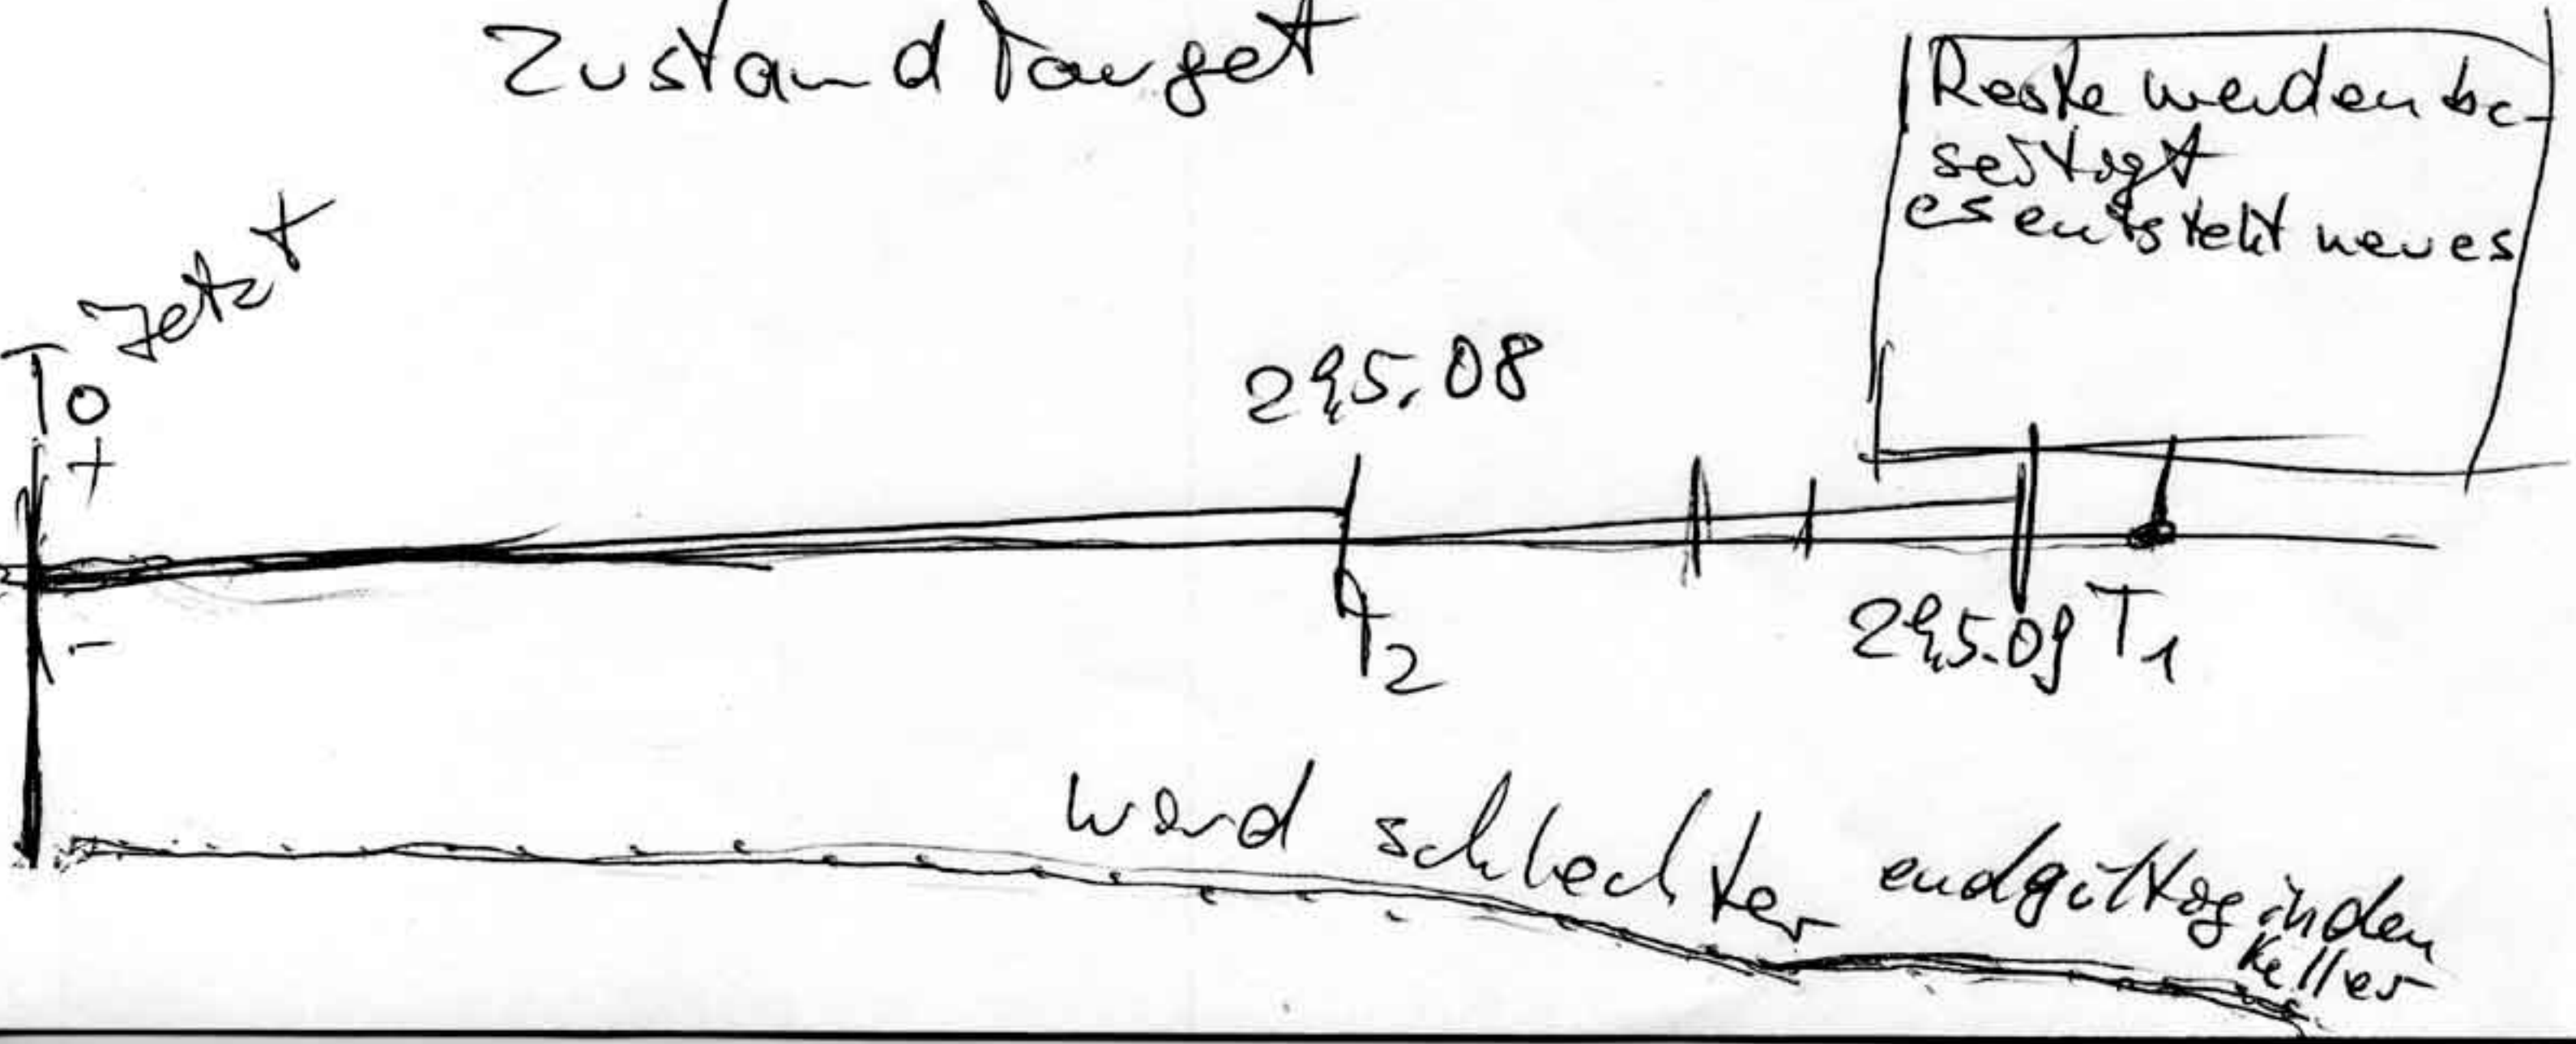 Zustand Target
Reste werden be-
seitigt
es entsteht neues
Jetzt
T0
+
29.5.08
-
T2
29.5.09 T1
wird schlechter endgültig in den
Keller